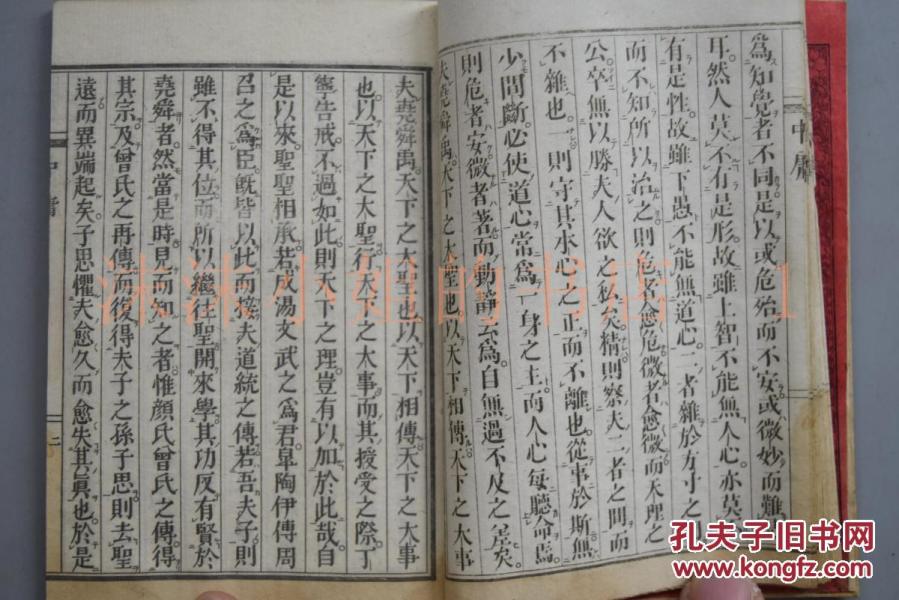 中庸
為知覺者不同是以或危殆而不安或微妙而難
耳然人莫不有是形故雖上智不能無人心亦莫
有是性故雖下愚不能無道心二者雜於方寸之
而不知所以治之則危者愈危微者愈微而天理之
公卒無以勝夫人欲之私矣精則察夫二者之間而
不雜也一則守其本心之正而不離也從事於斯無
少間斷必使道心常為一身之主而人心每聽命焉
則危者安微者著而動靜云為自無過不及之差矣
夫堯舜禹天下之大聖也以天下相傳天下之大事
夫堯舜禹天下之大聖也以天下相傳天下之大事
也以天下之大聖行天下之大事而其授受之際丁
寧告戒不過如此則天下之理豈有以加於此哉自
是以來聖聖相承若成湯文武之為君皐陶伊傅周
召之為臣既皆以此而接夫道統之傳若吾夫子則
雖不得其位而所以繼往聖開來學其功反有賢於
堯舜者然當是時見而知之者惟顏氏曾氏之傳得
其宗及曾氏之再傳而復得夫子之孫子思則去聖
遠而異端起矣子思懼夫愈久而愈失其眞也於是
中庸
二
沐沐小姐的书店 1
孔夫子旧书网
www.kongfz.com